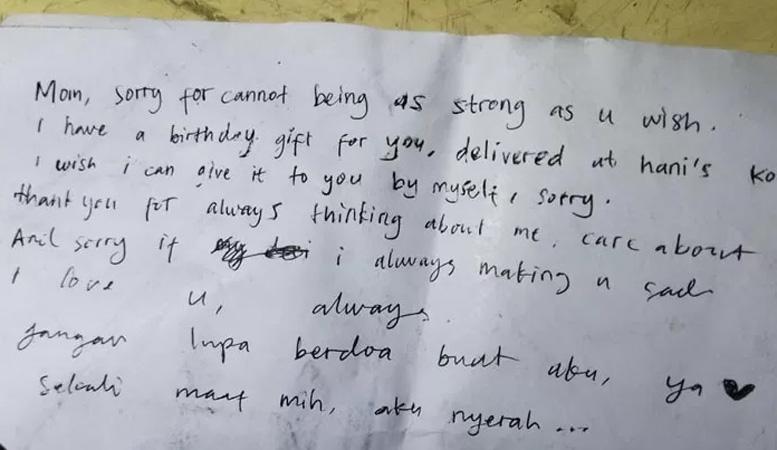 Mom, sorry for cannot being as strong as u wish.
I have a birthday gift for you, delivered at hani's ko
I wish i can give it to you by myself, sorry.
thank you for always thinking about me, care about
And sorry if i always making u sad
I love u, always
jangan lupa berdoa buat aku, ya ♥
Sekali maaf mih, aku nyerah...